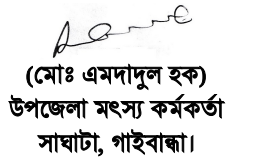 (মোঃ এমদাদুল হক)
উপজেলা মৎস্য কর্মকর্তা
সাঘাটা, গাইবান্ধা।